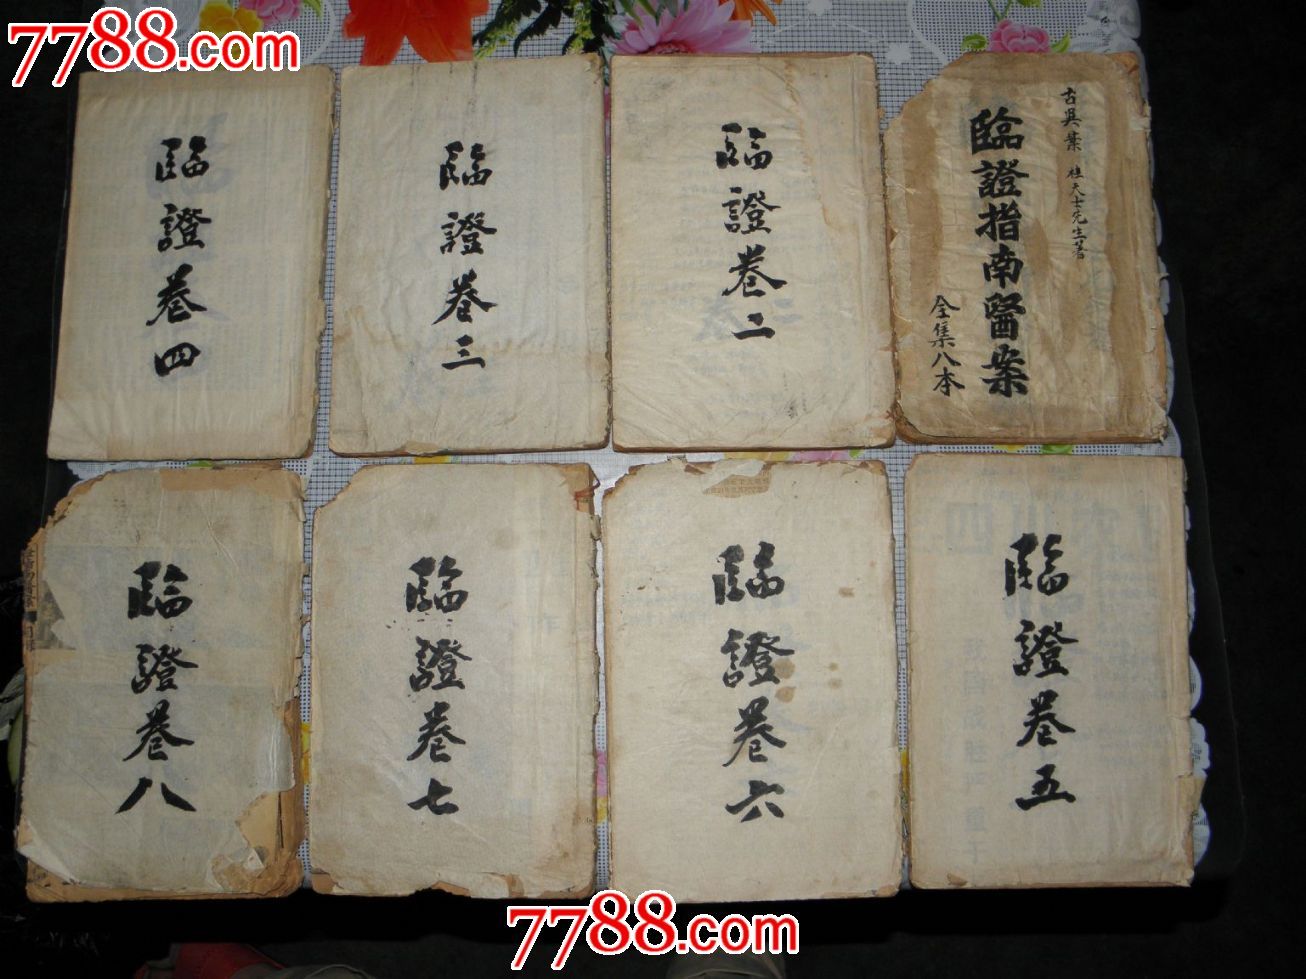 7788.com
7788.com
古吳葉桂天士先生著
臨證指南醫案
全集八本
臨證卷二
臨證卷三
臨證卷四
臨證卷五
臨證卷六
臨證卷七
臨證卷八
7788.com